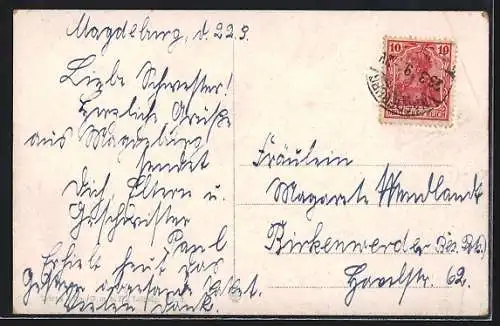 Magdeburg, d. 22.9.
Liebe Schwester!
Herzliche Grüße
aus Magdeburg
sendet
Dir, Eltern u.
Geschwister
Paul
Erhielt heut das
Vielen Dank.
10 10
Fräulein
Magarete Wandlandt
Birkenwerder
Havelstr. 62.